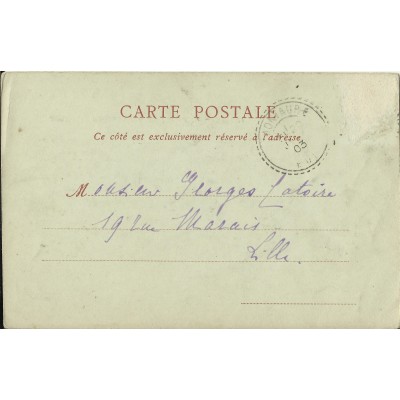 CARTE POSTALE
Ce côté est exclusivement réservé à l'adresse.
03
Monsieur Georges Latoire
19 rue Marais
Lille.